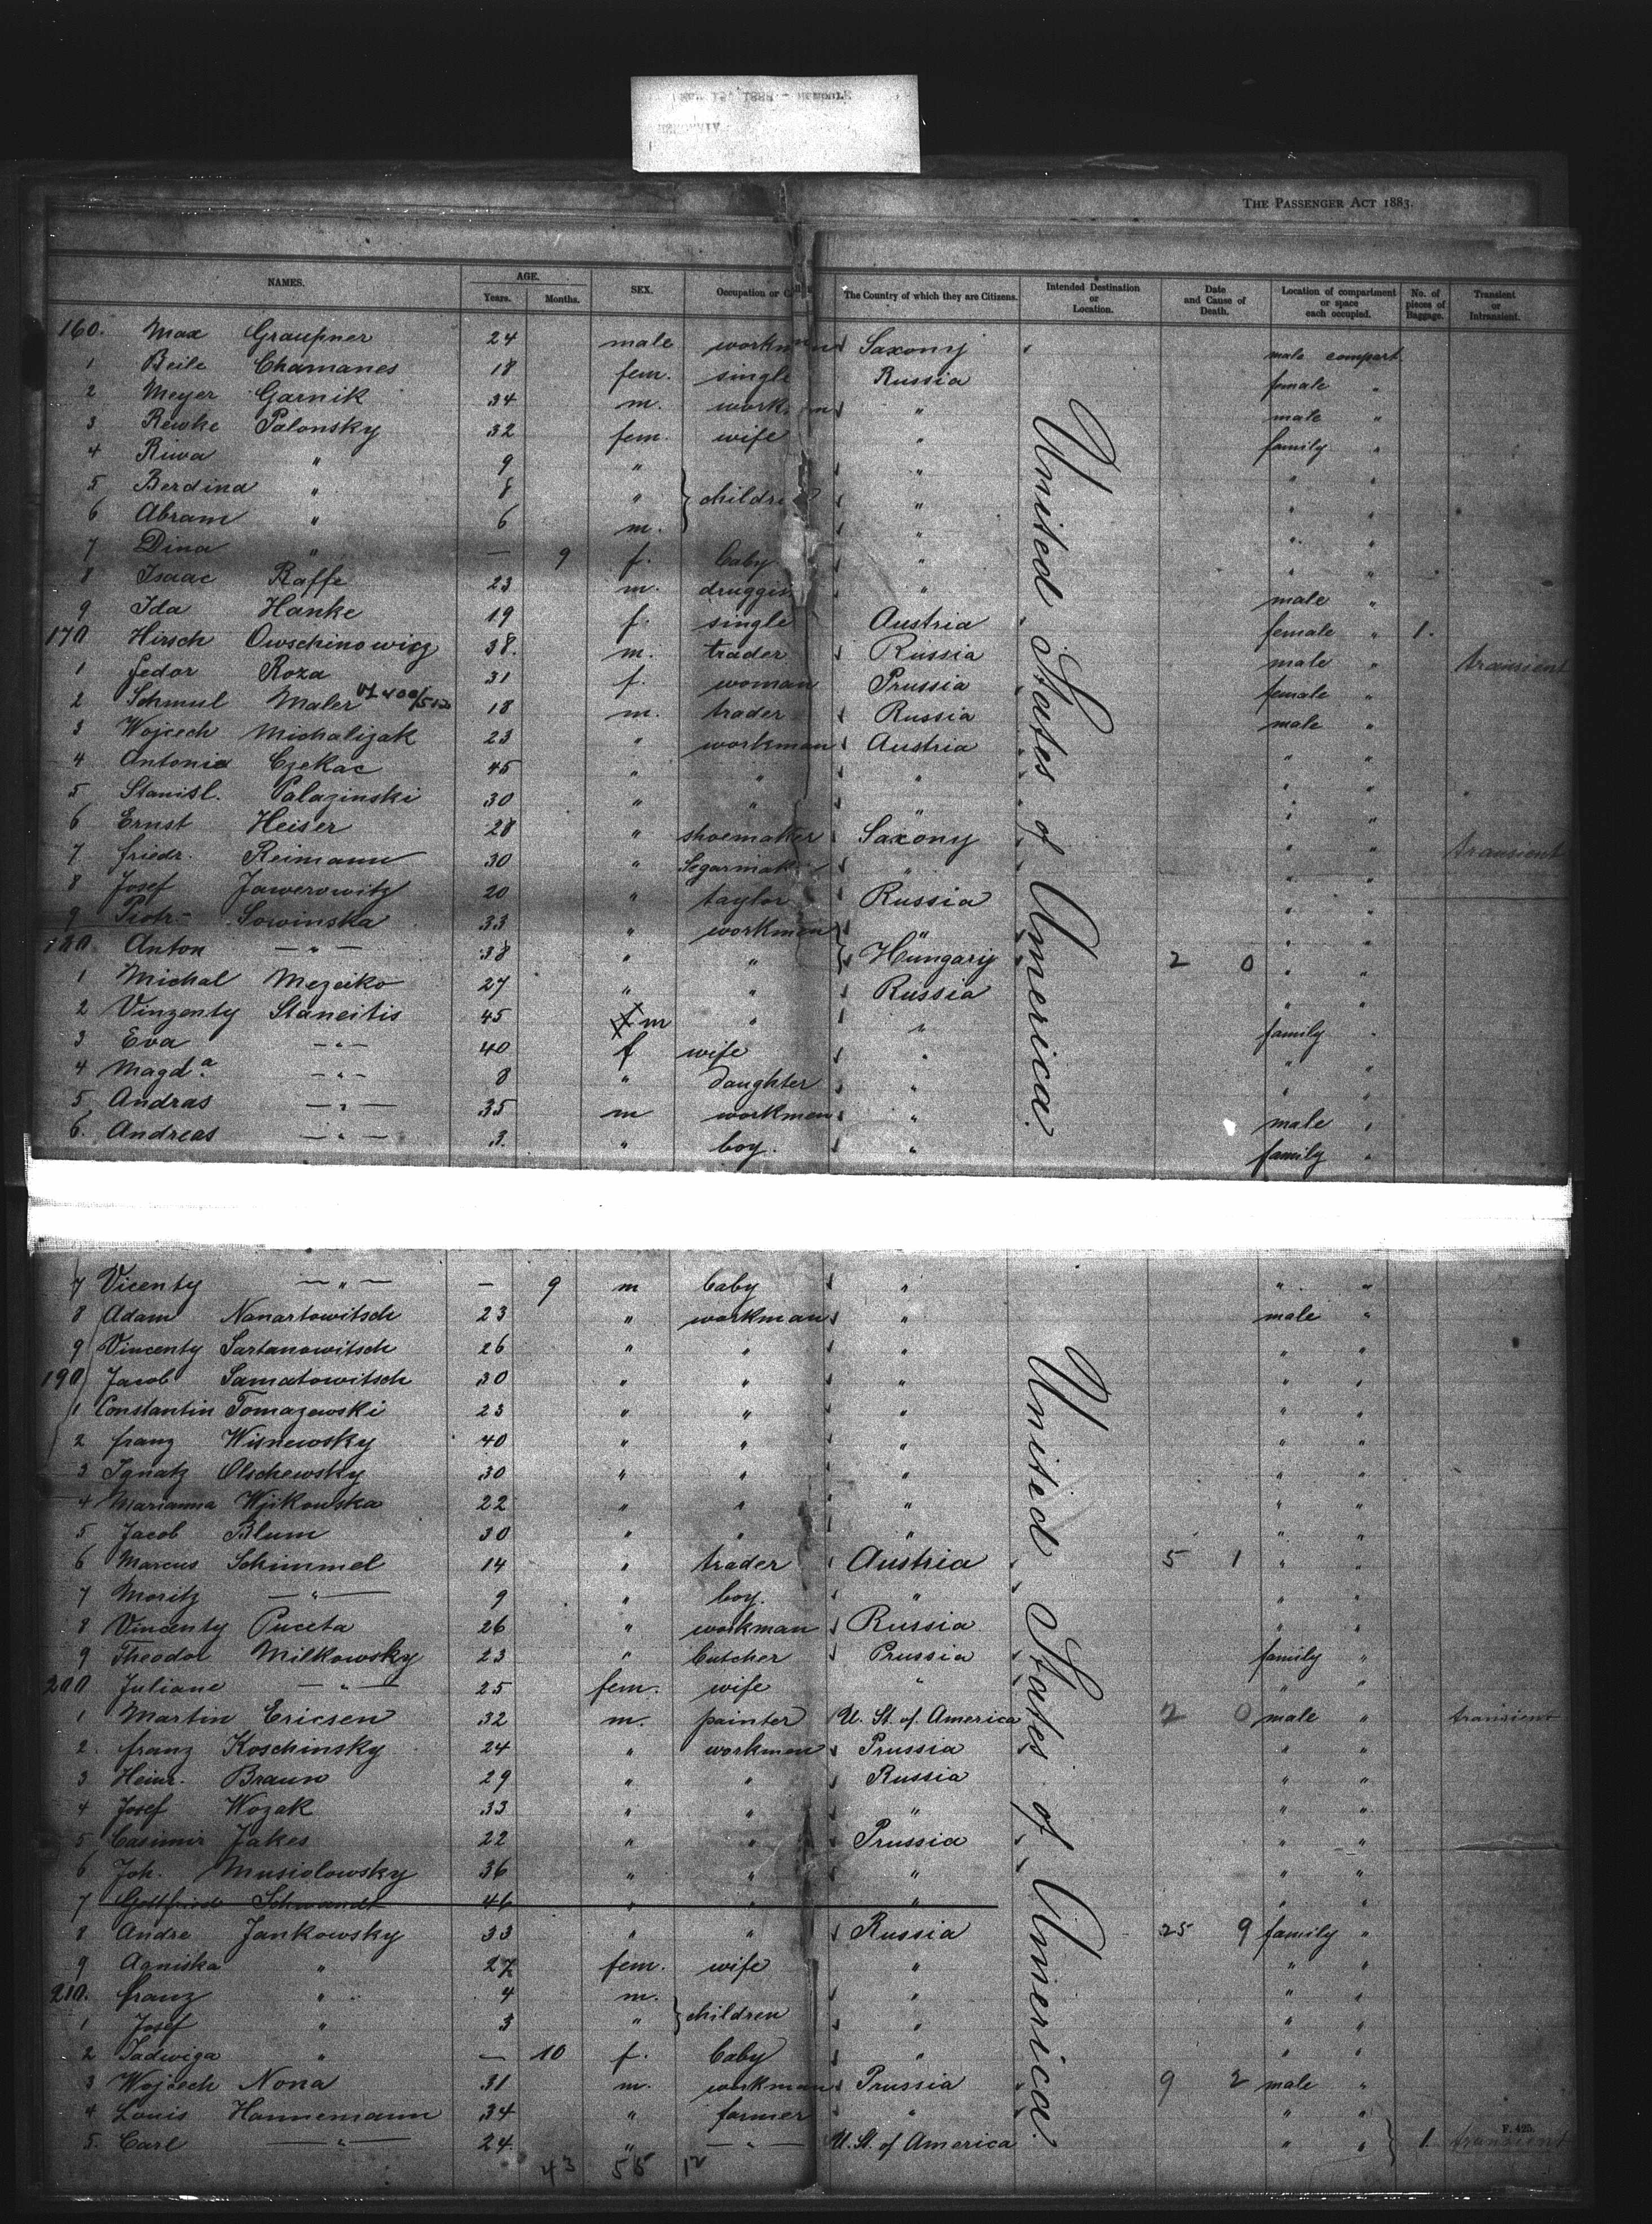 THE PASSENGER ACT 1883.
NAMES. AGE. Years. Months. SEX. Occupation or The Country of which they are Citizens. Intended Destination or Location. Date and Cause of Death. Location of compartment or space each occupied. No. of pieces of Baggage. Transient or Intransient.
160. Max Graupner 24 male workman Saxony male compart.
1 Beile Chamanes 18 fem. single Russia female "
2 Meyer Garnik 34 m. workman " male "
3 Rewke Polonsky 32 fem. wife " family "
4 Riwa " 9 " " " "
5 Berdina " 8 " } children " " "
6 Abram " 6 m. " " "
7 Dina " — 9 f. baby " " "
8 Isaac Raffe 23 m. druggist " male "
9 Ida Hanke 19 f. single Austria female " 1.
170 Hirsch Owschinowicz 38. m. trader Russia male " transient
1 Fedor Roza 31 f. woman Prussia female "
2 Schmul Maler 18 m. trader Russia male "
3 Wojcech Michalizak 23 " workman Austria " "
4 Antonia Czekac 45 " " " " "
5 Stanisl. Palazinski 30 " " " " "
6 Ernst Heiser 28 " shoemaker Saxony " " transient
7 Friedr. Reimann 30 " Segarmak " " "
8 Josef Jawerowitz 20 " taylor Russia " "
9 Piotr Sowinska 33 " workman " " "
180 Anton — " — 38 " " Hungary 2 0 " "
1 Michal Mezeiko 27 " " Russia " "
2 Vinzenty Staneitis 45 m " " family "
3 Eva — " — 40 f wife " " "
4 Magd.a — " — 8 " daughter " " "
5 Andras — " — 35 m workman " male "
6. Andreas — " — 3. " boy. " family "
United States of America.
7 Vicenty — " — — 9 m baby " " "
8 Adam Nanartowitsch 23 " workman " male "
9 Vincenty Sartanowitsch 26 " " " " "
190 Jacob Samatowitsch 30 " " " " "
1 Constantin Tomazewski 23 " " " " "
2 Franz Wisnewsky 40 " " " " "
3 Ignatz Olschewsky 30 " " " " "
4 Marianna Wjikowska 22 " " " " "
5 Jacob Blum 30 " " " " "
6 Marcus Schimmel 14 " trader Austria 5 1 " "
7 Moritz — " — 9 " boy. " " "
8 Vincenty Puceta 26 " workman Russia " "
9 Theodor Milkowsky 23 " butcher Prussia family "
200 Juliane — " — 25 fem. wife " " "
1 Martin Ericsen 32 m. painter U. St. of America 2 0 male " transient
2. Franz Koschinsky 24 " workman Prussia " "
3 Heinr. Braun 29 " " Russia " "
4 Josef Wozak 33 " " " " "
5 Casimir Jakes 22 " " Prussia " "
6 Joh. Musiolowsky 36 " " " " "
7 Gottfried Schwandt 46 " " " " "
8 Andre Jankowsky 33 " " Russia 25 9 family "
9 Agniska " 27 fem. wife " " "
210. Franz " 4 m. " " "
1 Josef " 3 " } children " " "
2 Jadwiga " — 10 f. baby " " "
3 Wojcech Nona 31 m. workman Prussia 9 2 male "
4 Louis Hannemann 34 " farmer " " "
5. Carl — " — 24 " — " — U. St. of America " " } 1. transient
United States of America.
F. 425.
43 55 12